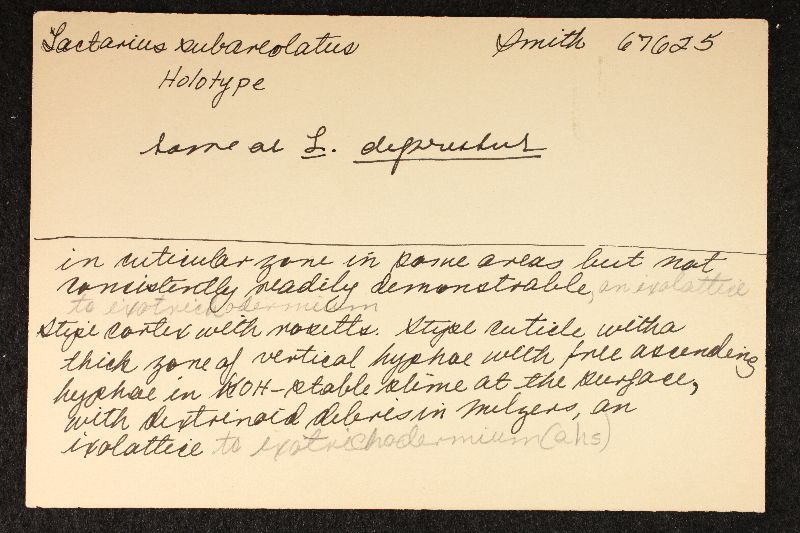 Lactarius subareolatus Smith 67625
Holotype
same as L. depressus
in cuticular zone in some areas but not
consistently readily demonstrable, an ixolattice
to ixotrichodermium
Stipe cortex with rosetts. Stipe cuticle with a
thick zone of vertical hyphae with free ascending
hyphae in KOH-stable slime at the surface,
with dextrinoid debris in Melzers, an
ixolattice to ixotrichodermium (ahs)